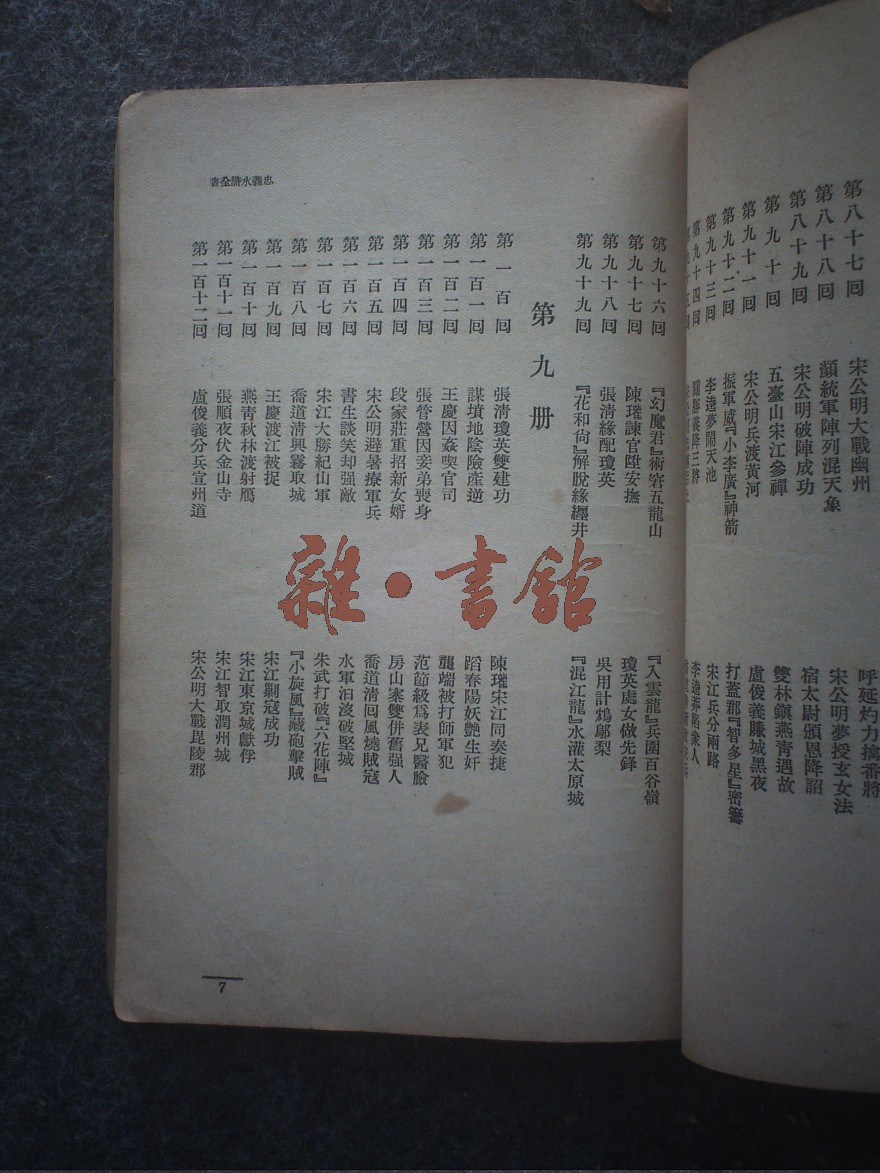 第八十七回　宋公明大戰幽州　呼延灼力擒番將
第八十八回　顏統軍陣列混天象　宋公明夢授玄女法
第八十九回　宋公明破陣成功　宿太尉頒恩降詔
第九十回　五臺山宋江參禪　雙林鎮燕靑遇故
第九十一回　宋公明兵渡黃河　盧俊義賺城黑夜
第九十二回　振軍威『小李廣』神箭　打蓋郡『智多星』密籌
第九十三回　李逵夢鬧天池　宋江兵分兩路
第九十四回　關勝義降三將　李逵莽陷衆人
忠義水滸全書
第九十六回　『幻魔君』術窘五龍山　『入雲龍』兵圍百谷嶺
第九十七回　陳瓘諫官陞安撫　瓊英處女做先鋒
第九十八回　張淸緣配瓊英　吳用計鴆鄔梨
第九十九回　『花和尙』解脫緣纏井　『混江龍』水灌太原城
第九册
第一百回　張淸瓊英雙建功　陳瓘宋江同奏捷
第一百一回　謀墳地陰險產逆　蹈春陽妖艷生奸
第一百二回　王慶因姦喫官司　龔端被打師軍犯
第一百三回　張管營因妾弟喪身　范節級爲表兄醫臉
第一百四回　段家莊重招新女婿　房山寨雙併舊强人
第一百五回　宋公明避暑療軍兵　喬道淸回風燒賊寇
第一百六回　書生談笑却强敵　水軍汨沒破堅城
第一百七回　宋江大勝紀山軍　朱武打破『六花陣』
第一百八回　喬道淸興霧取城　『小旋風』藏砲擊賊
第一百九回　王慶渡江被捉　宋江剿寇成功
第一百十回　燕靑秋林渡射鴈　宋江東京城獻俘
第一百十一回　張順夜伏金山寺　宋江智取潤州城
第一百十二回　盧俊義分兵宣州道　宋公明大戰毘陵郡
7
雜·書館